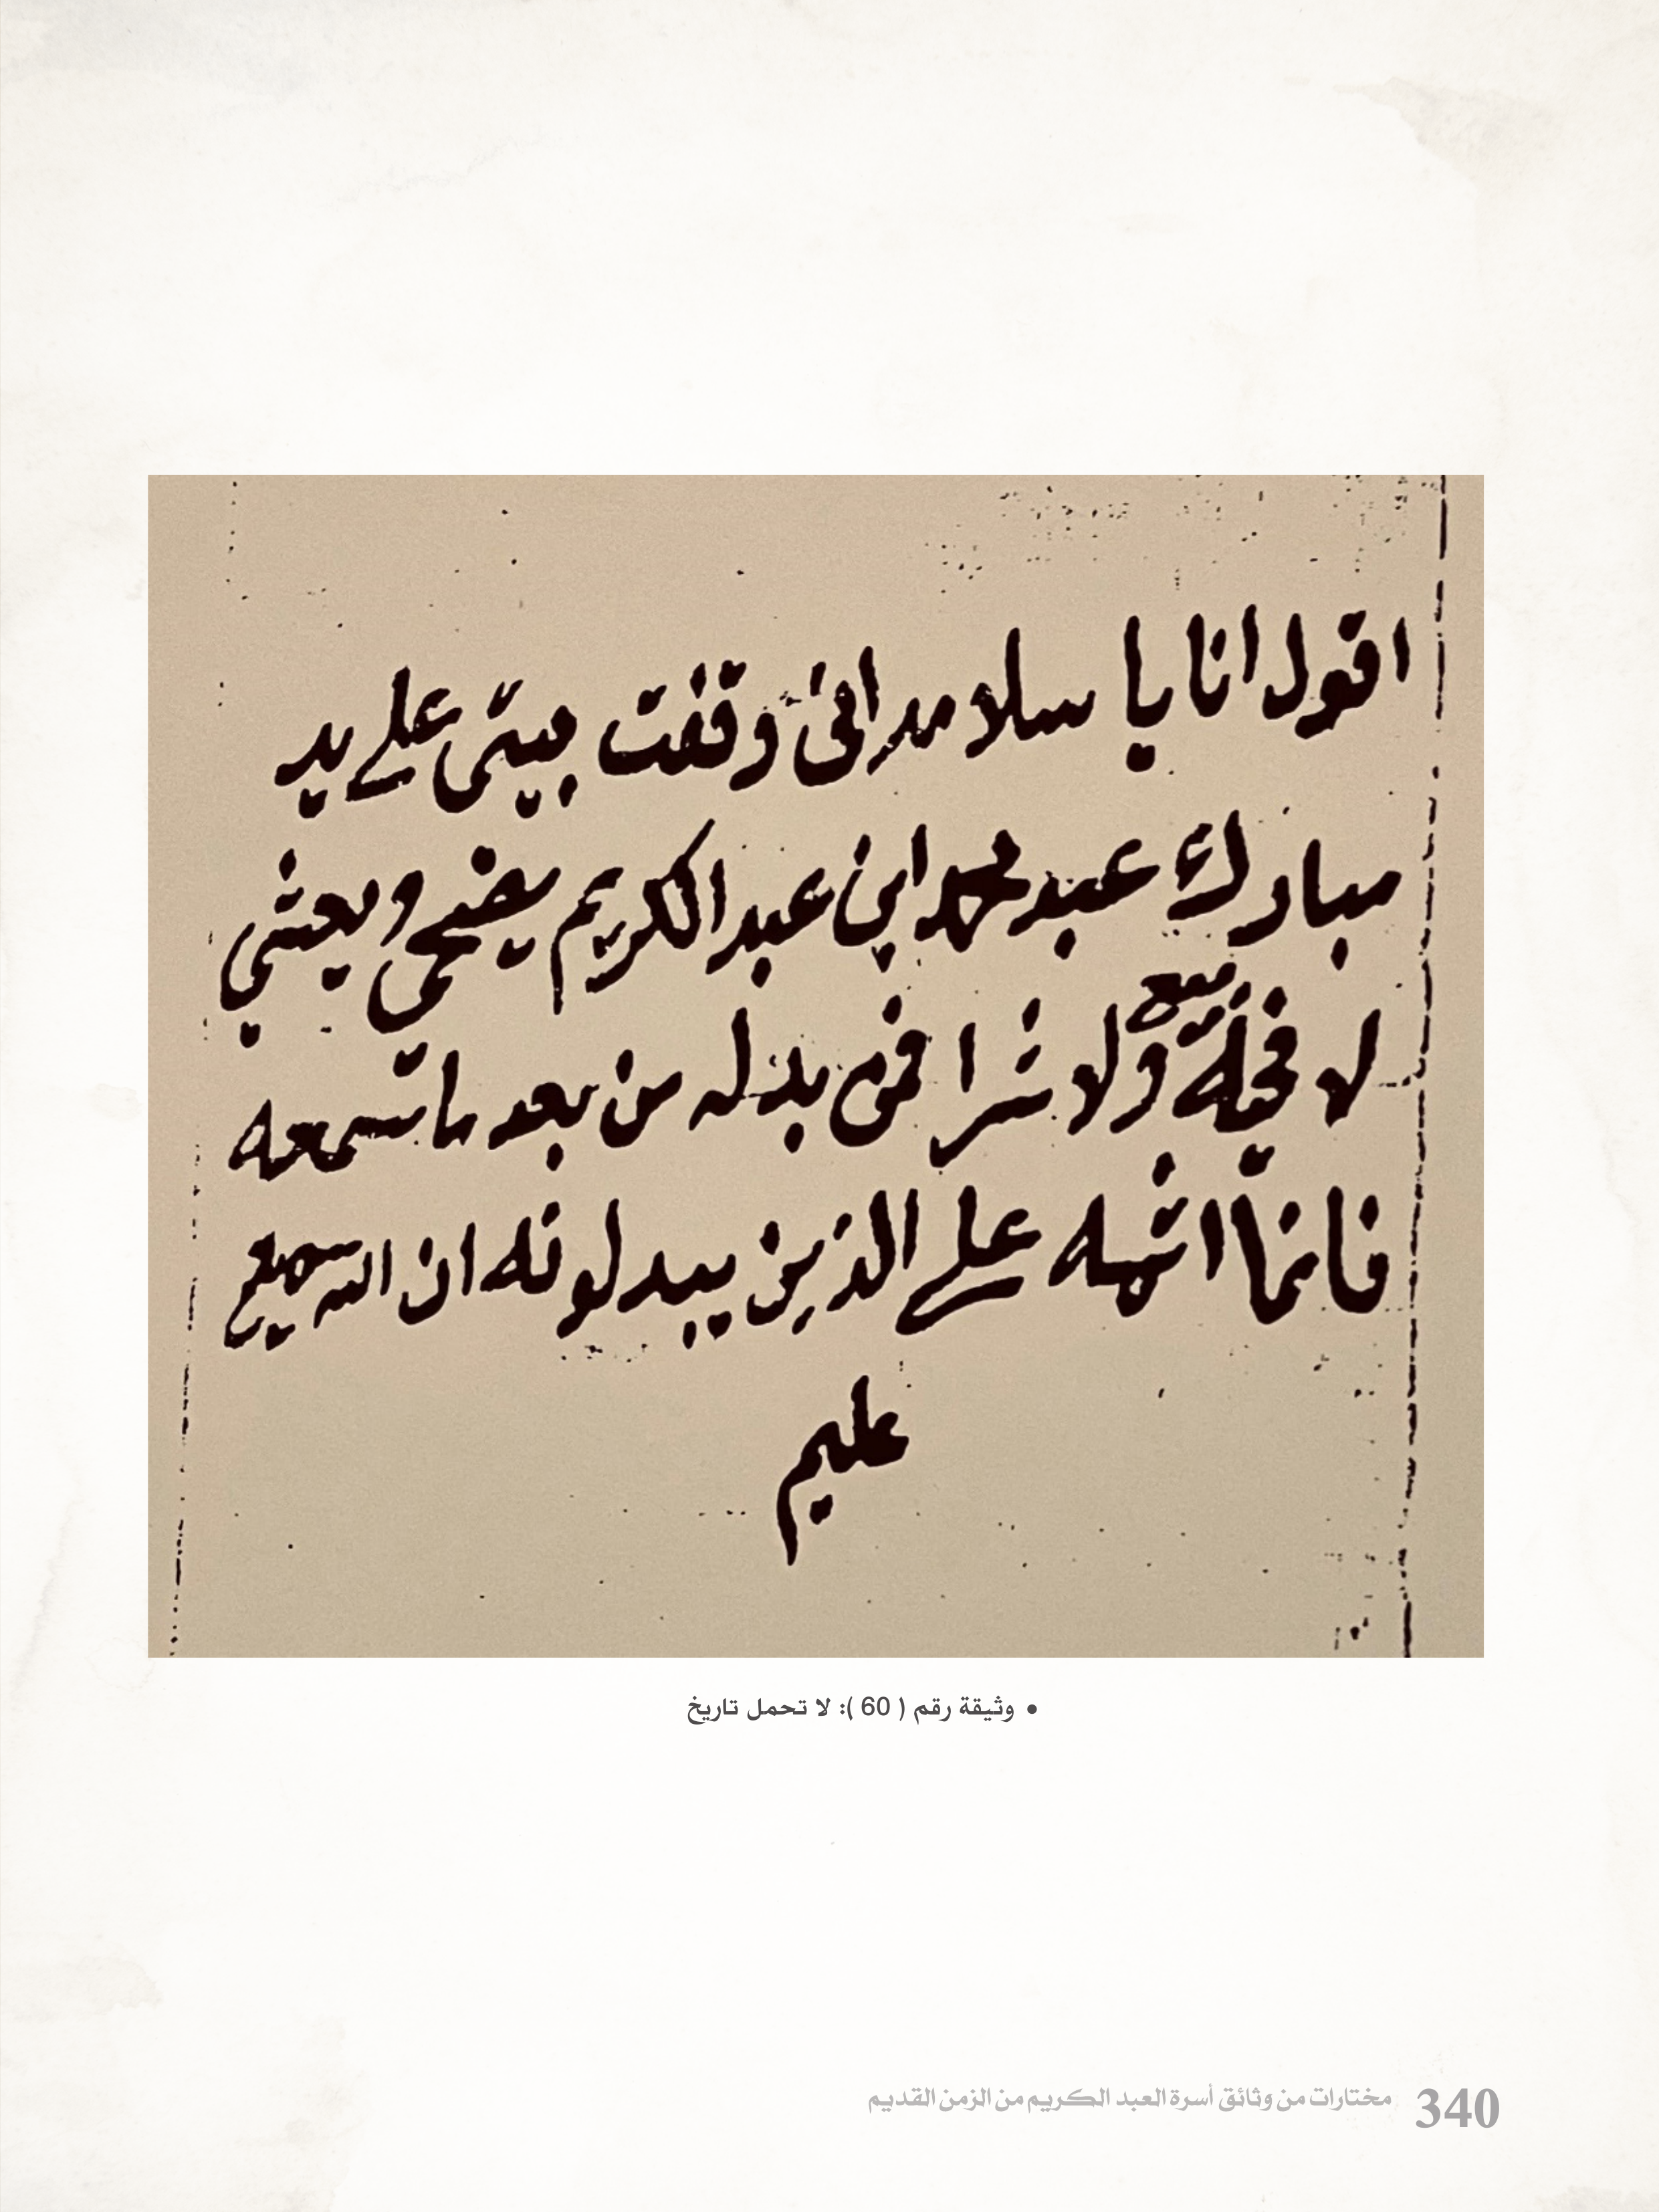 اقول انا يا سلامه اني وقفت بيتي علے يد
مبارك عبد محمد ابن عبد الكريم يضحي ويعشي
لا فيه بيع ولا شرا فمن بدله من بعد ما سمعه
فانما اثمه علے الذين يبدلونه ان الله سميع
عليم
• وثيقة رقم ( 60 ): لا تحمل تاريخ
340 مختارات من وثائق أسرة العبد الكريم من الزمن القديم